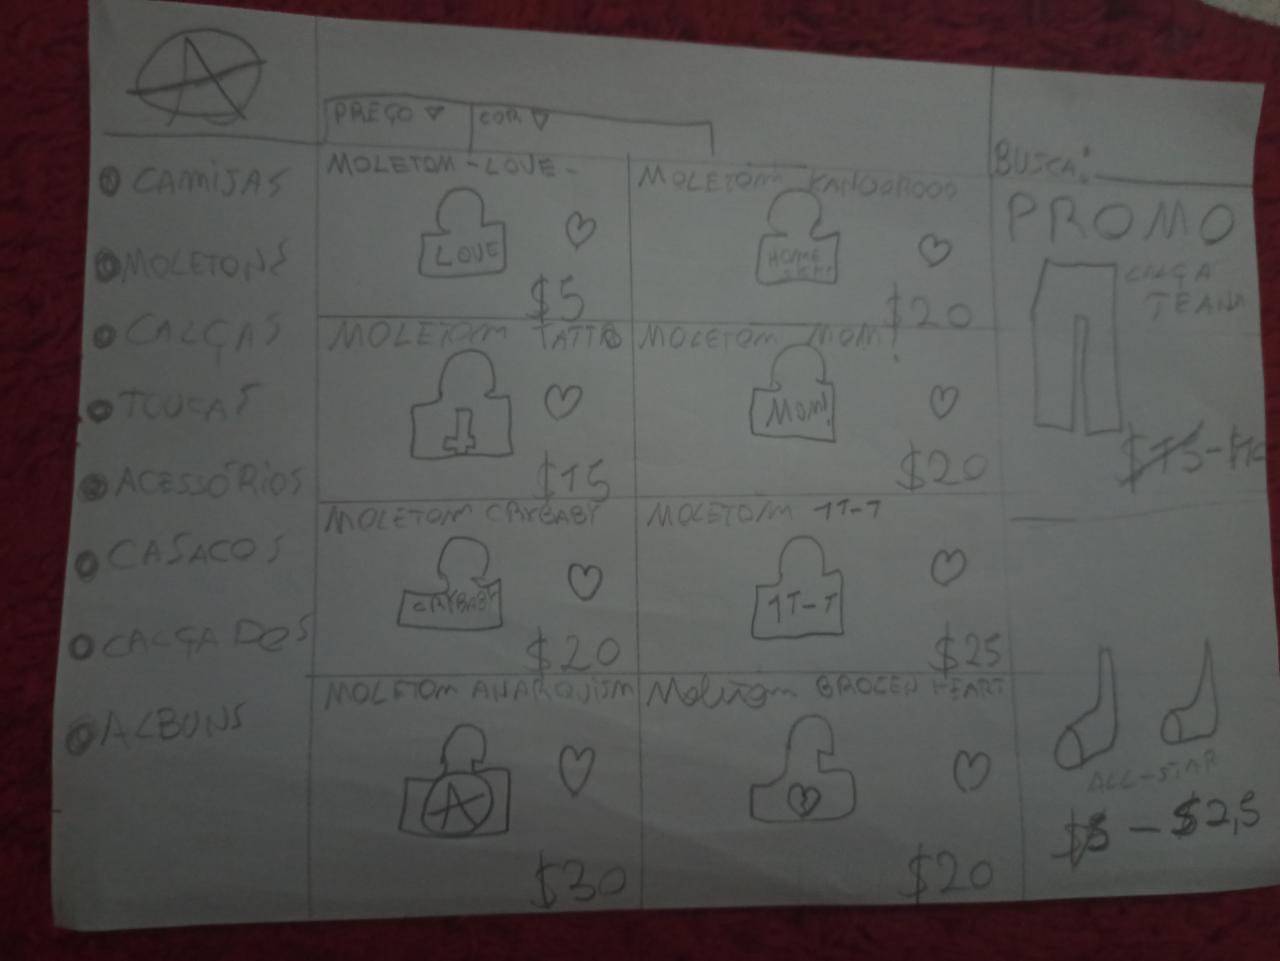 A
PREÇO
COR
BUSCA:
CAMIJAS
MOLETONS
CALÇAS
TOUCAS
ACESSÓRIOS
CASACOS
CALÇADOS
ALBUNS
MOLETOM - LOVE -
LOVE
$5
MOLETOM KANGOROOS
HOME
$20
MOLETOM TATTO
$15
MOLETOM MOM!
MOM!
$20
MOLETOM CRYBABY
CRYBABY
$20
MOLETOM 1T-T
1T-T
$25
MOLETOM ANARQUISM
A
$30
Moletom BROCEN HEART
$20
PROMO
CALÇA
$15 -
ALL-STAR
$5 - $2,5